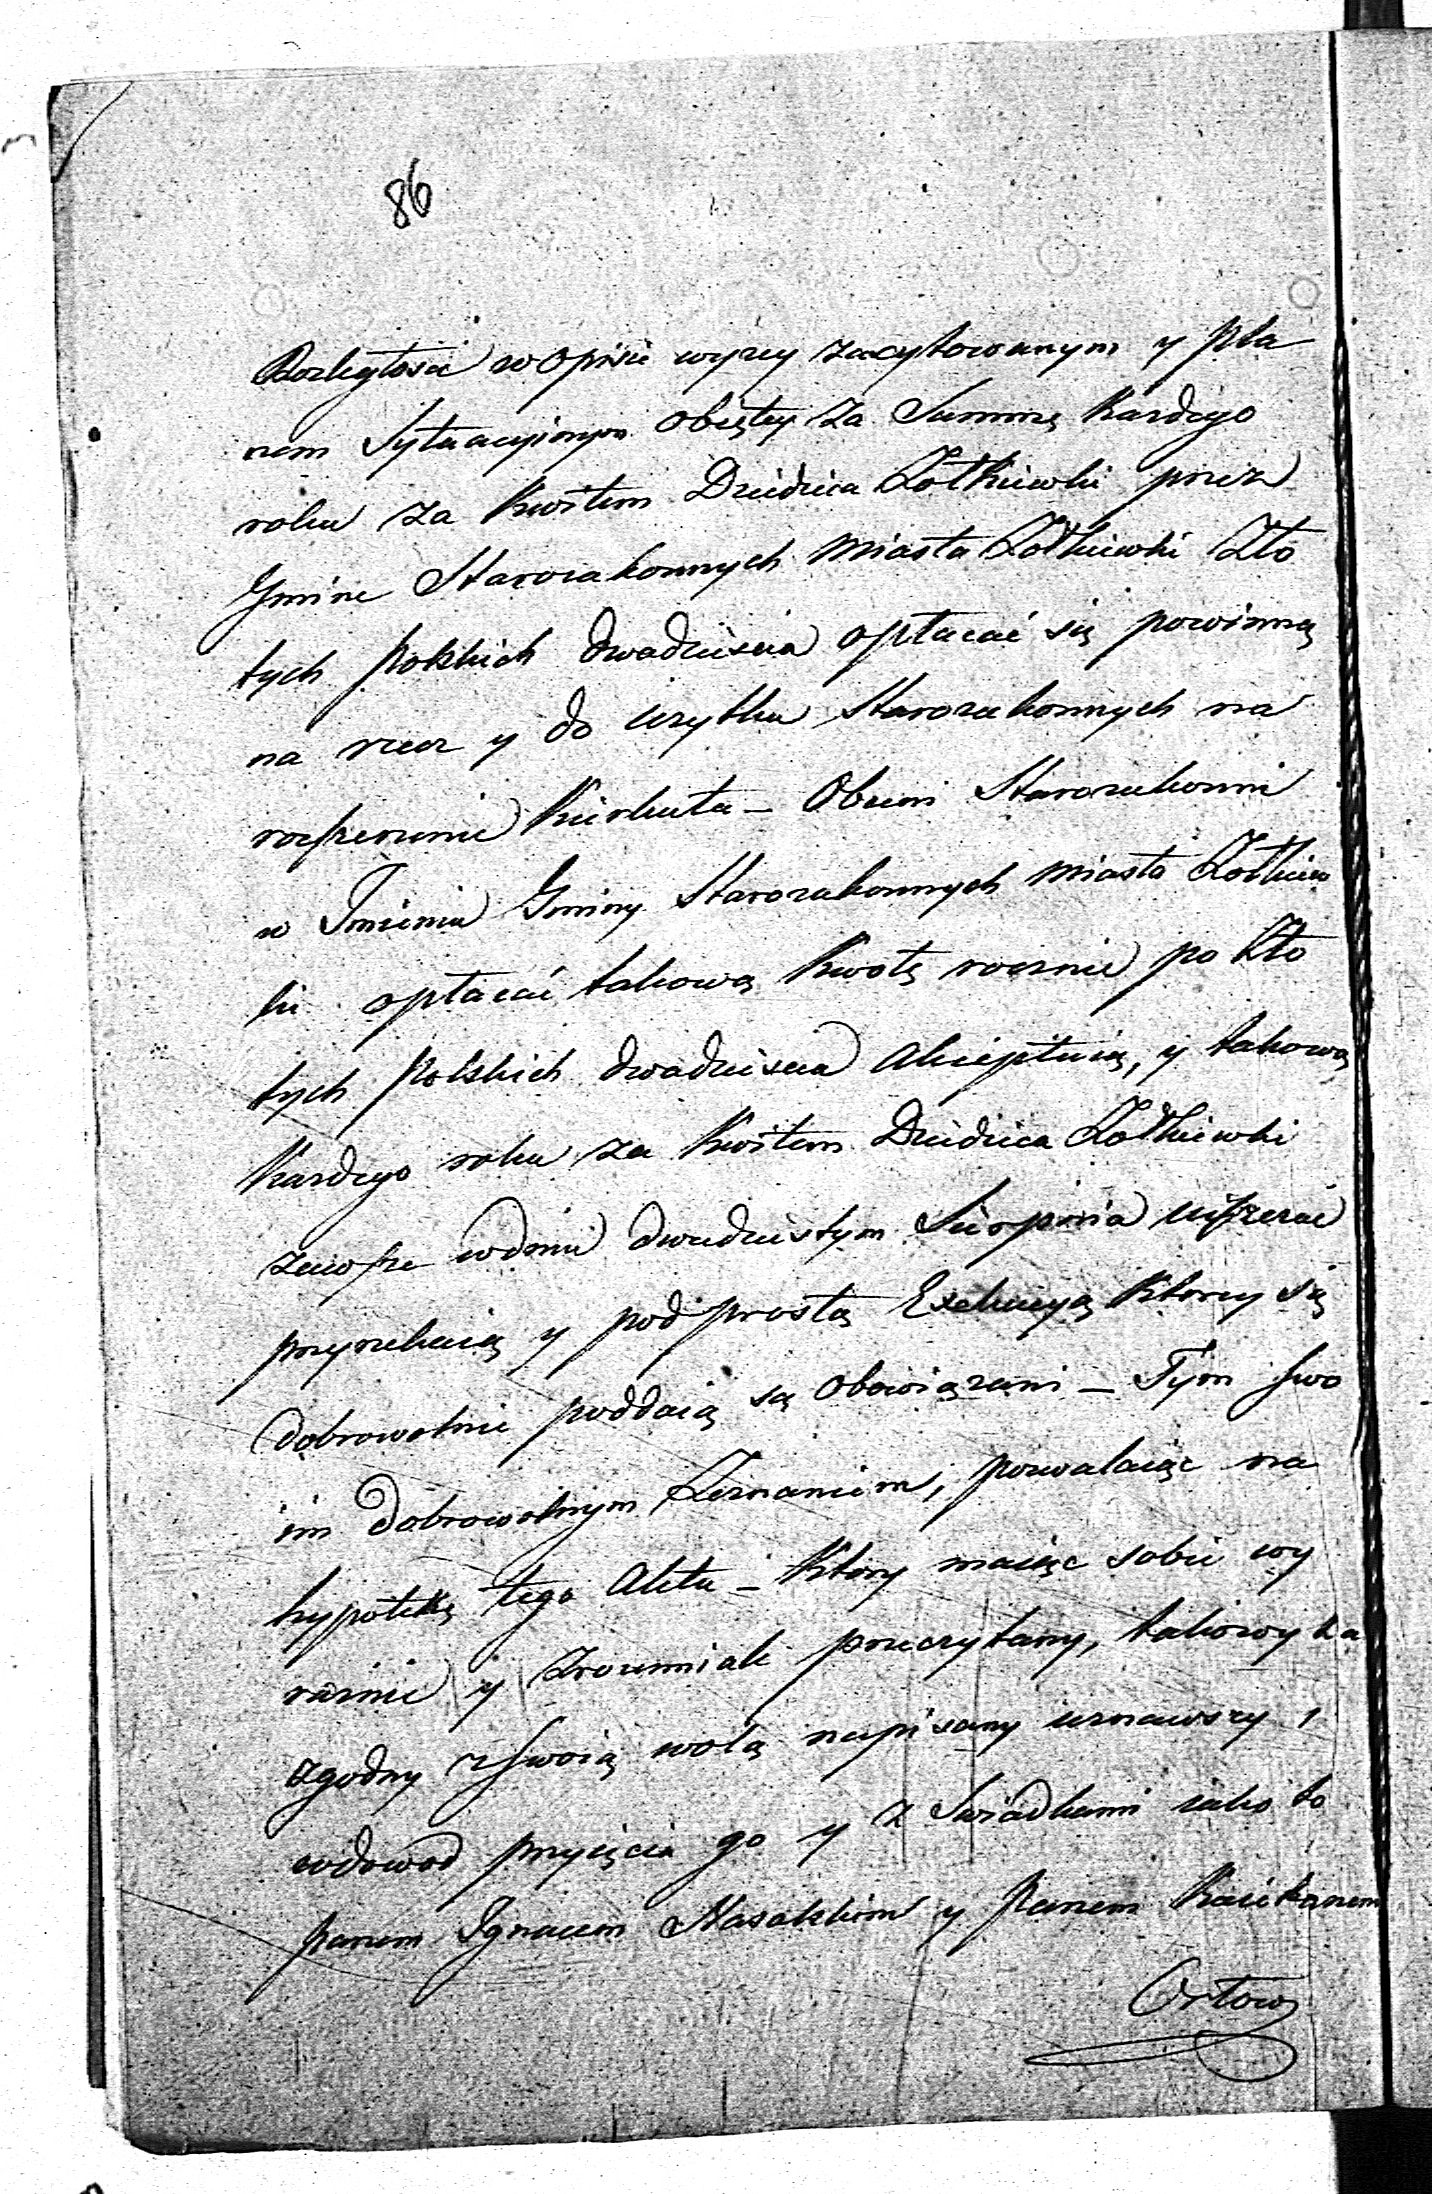 86
Rozległości w opisie wyzey zacytowanym y pla
nem Sytuacyinym obiętey za Summę kazdego
roku za kwitem Dziedzica Zołkiewki przez
Gminę Starozakonnych Miasta Zołkiewki Zło
tych Polskich dwadzieścia opłacać się powinną
na rzecz y do uzytku Starozakonnych na
rozszerzenie Kierkuta – Obecni Starozakonni
w Imieniu Gminy Starozakonnych Miasta Zołkiew
ki opłacać takową kwotę rocznie po Zło
tych Polskich dwadzieścia akceptuią, y takową
kazdego roku za kwitem Dziedzica Zołkiewki
zawsze w dniu dwudziestym Sierpnia uiszczać
przyrzekaią y pod prostą Exekucyą ktorey się
dobrowolnie poddaią są obowiązani – Tym swo
im dobrowolnym Zeznaniem, pozwalaiąc na
hypotekę tego Aktu – Ktory maiąc sobie wy
raźnie y zrozumiale przeczytany, takowy za
zgodny z swoią wolą napisany uznawszy,
w dowod przyięcia go y z Swiadkami iako to
Panem Ignacem y Panem Kaietanem
Orłow